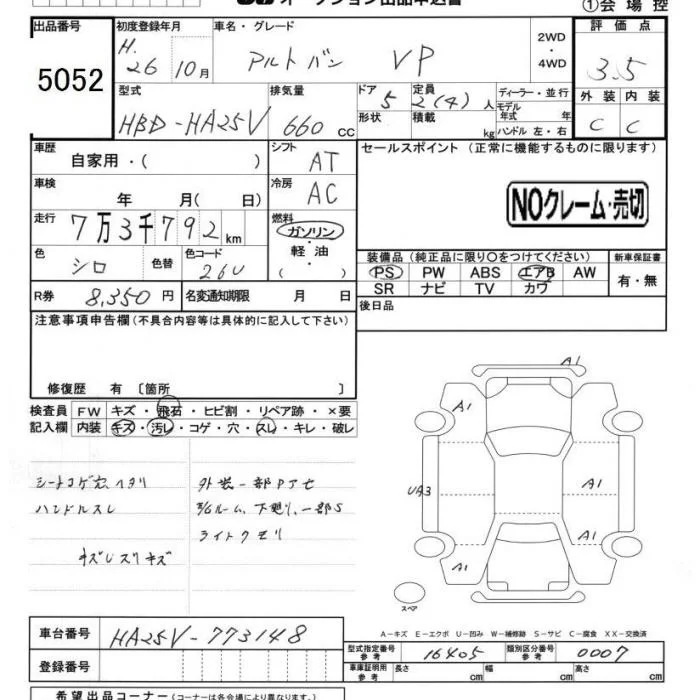 オークション出品申込書
①会場控
出品番号 初度登録年月 車名・グレード 2WD・4WD 評価点
5052 H. 26 10月 アルトバン VP 3.5
型式 排気量 ドア 定員 ディーラー・並行 外装 内装
HBD-HA25V 660 cc 5 2(4)人 モデル年式 年 C C
形状 積載 kg ハンドル 左・右
車歴 自家用・( ) シフト AT セールスポイント (正常に機能するものに限ります)
車検 年 月( 日) 冷房 AC
NOクレーム・売切
走行 7万3千792km 燃料 ガソリン・軽油・( )
色 シロ 色替 色コード 26U
装備品 (純正品に限り○をつけてください) 新車保証書
PS PW ABS エアB AW 有・無
SR ナビ TV カワ
R券 8,350円 名変通知期限 月 日 後日品
注意事項申告欄 (不具合内容等は具体的に記入して下さい)
修復歴 有 〔箇所 〕
検査員 FW キズ・飛石・ヒビ割・リペア跡・×要
記入欄 内装 キズ・汚レ・コゲ・穴・スレ・キレ・破レ
シートコゲ穴ヘタリ 外装一部Pアセ
ハンドルスレ 下廻り、一部S
ライトクモリ
A1
A1
UA3 A1
A1 A1
スペア
A-キズ E-エクボ U-凹み W-補修跡 S-サビ C-腐食 XX-交換済
車台番号 HA25V-773148
型式指定番号 参考 16405 類別区分番号 参考 0007
登録番号 車庫証明用 参考 長さ cm 幅 cm 高さ cm
希望出品コーナー (コーナーは各会場により異なります。)